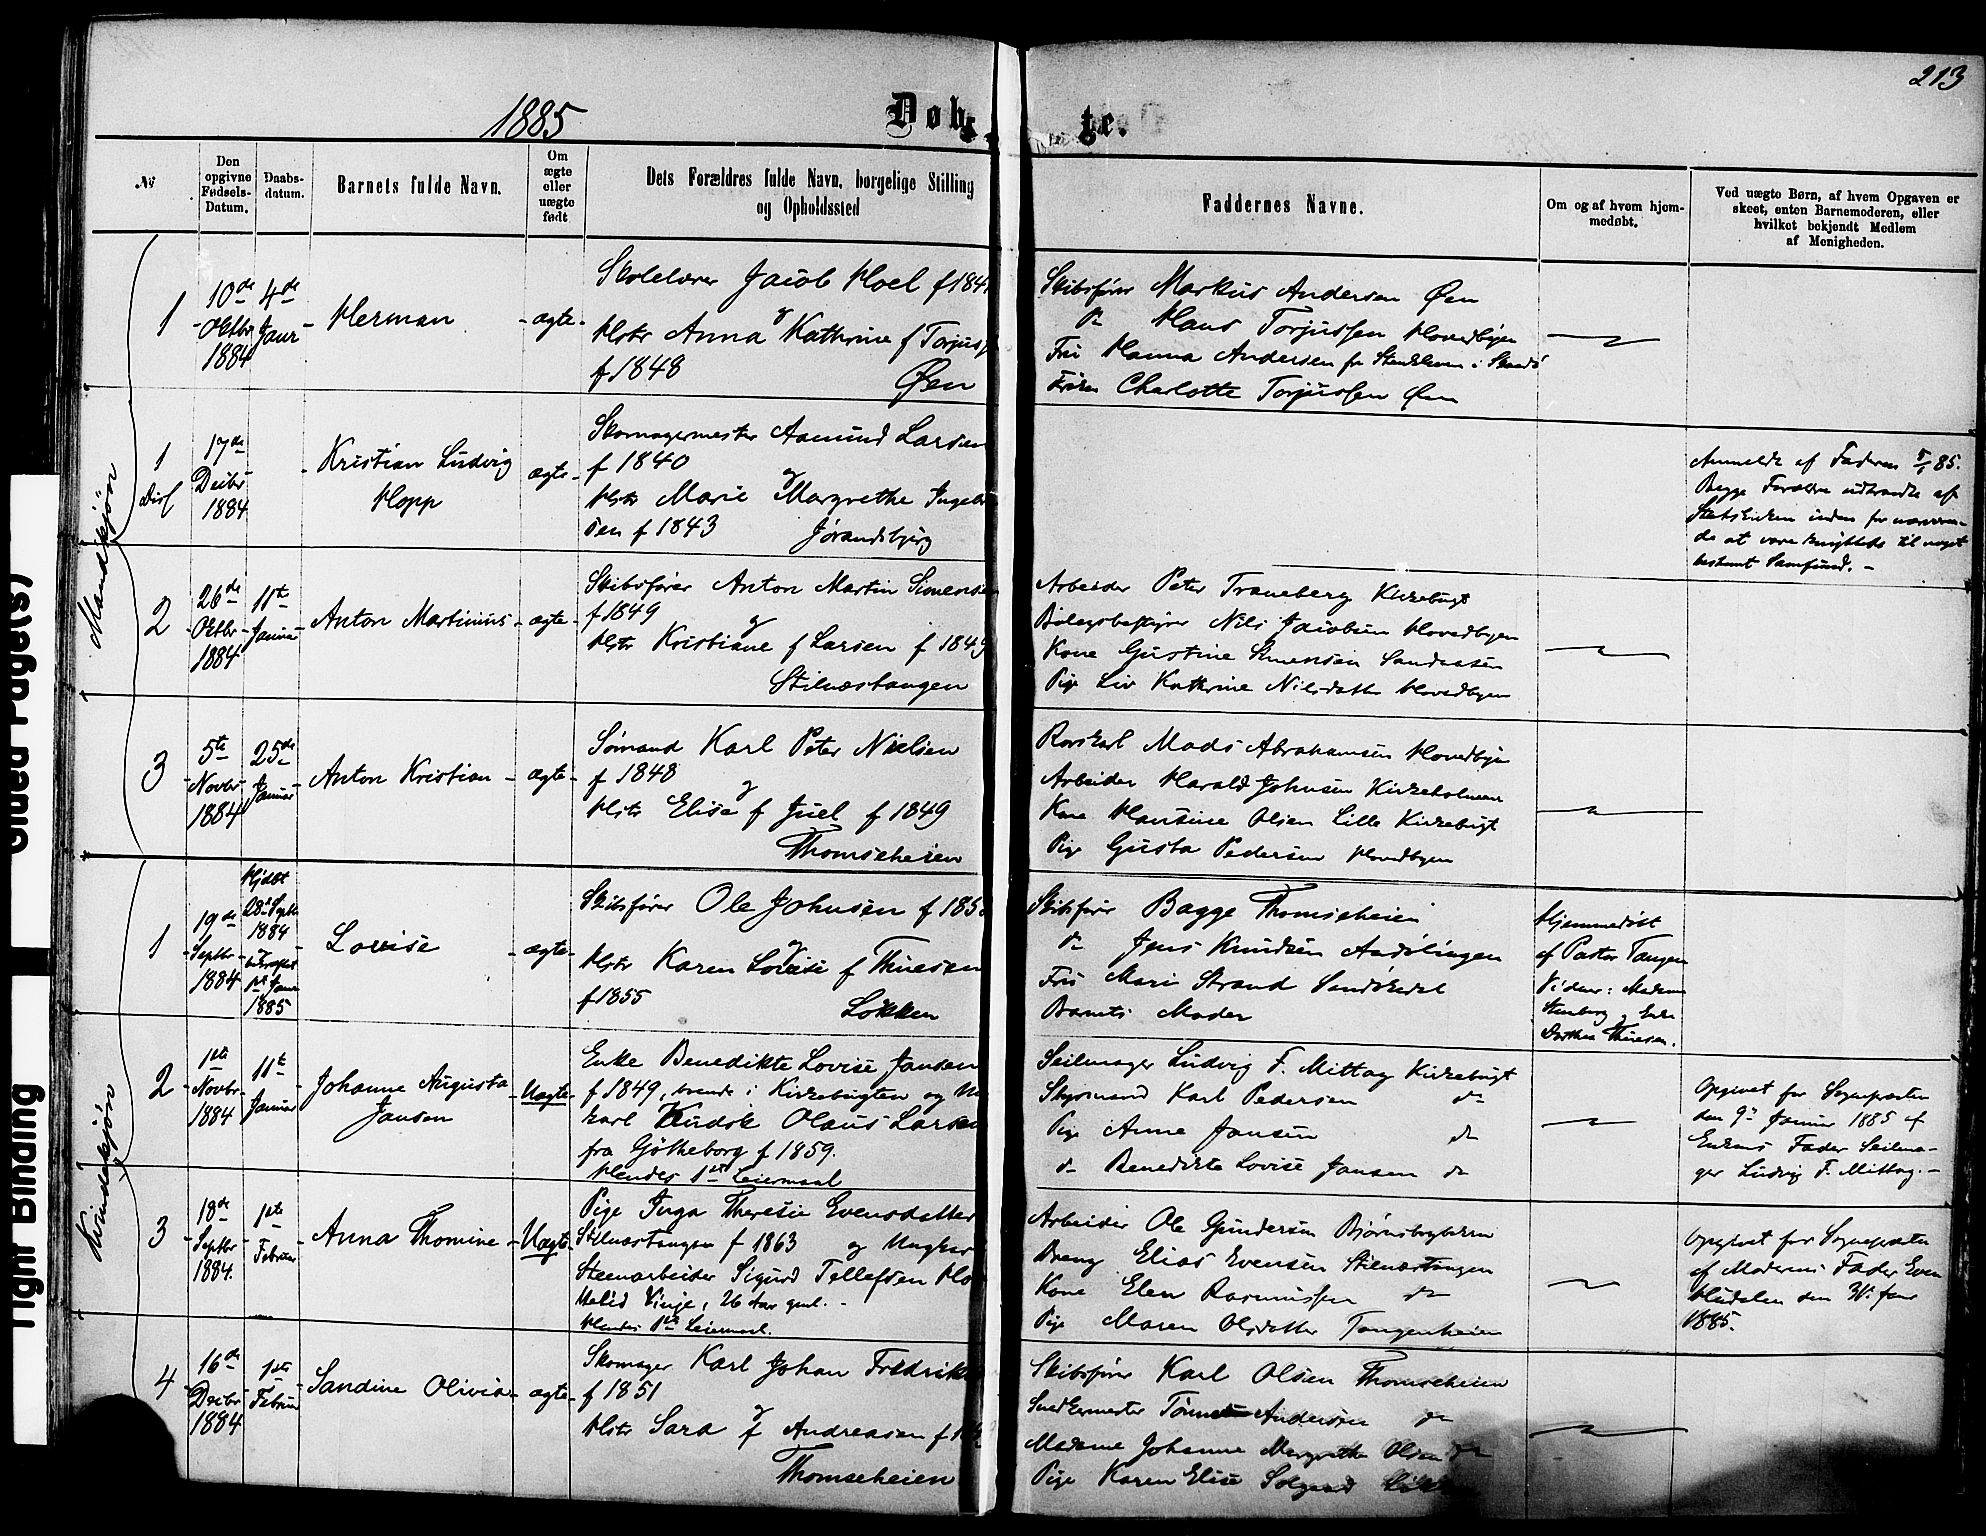 213
1885
Døbte.
№
Den opgivne Fødsels-Datum.
Daabs-datum.
Barnets fulde Navn.
Om ægte eller uægte født
Dets Forældres fulde Navn, borgelige Stilling og Opholdssted
Faddernes Navne.
Om og af hvem hjemmedøbt.
Ved uægte Børn, af hvem Opgaven er skeet, enten Barnemoderen, eller hvilket bekjendt Medlem af Menigheden.
Mandkjøn
1
10de Oktbr 1884
4de Janr
Herman
ægte
Skolelærer Jacob Hoel f 184
og
Hstr Anna Kathrine f Torjus
f 1848
Øen
Skibsfører Markus Andersen Øen
do Hans Torjussen Hovedbyen
Fru Hanna Andersen
Frøken Charlotte Torjussen Øen
1
Diss
17de Decbr 1884
Kristian Ludvig
Hopp
ægte
Skomagermester Aamund Larsen
f 1840
og
Hstr Marie Margrethe Ingebr
sen f 1843 Jørandsbjerg
Anmeldt af Faderen 5/1 85.
Begge Forældre udtraadte af
Statskirken uden for nærværen-
de at være knyttede til noget
bestemt Samfund. -
2
26de Oktbr 1884
11te Januar
Anton Martinius
ægte
Skibsfører Anton Martin Simensen
f 1849
og
Hstr Kristiane f Larsen f 1849
Stilnæstangen
Arbeider Peter Traneberg Kirkebugt
Nils Jacobsen Hovedbyen
Kone Gustine Simensen Sandaasen
Pige Liv Kathrine Nilsdatter Hovedbyen
3
5te Novbr 1884
25de Januar
Anton Kristian
ægte
Sømand Karl Peter Nielsen
f 1848
og
Hstr Elise f Juel f 1849
Thomseheien
Rorskarl Mads Abrahamsen Hovedbyen
Arbeider Harald Johnsen Kirkeholmen
Kone Hansine Olsen Lille Kirkebugt
Pige Gusta Pedersen Hovedbyen
Kvindekjøn
1
19de Septbr 1884
Hjdøbt 28de Septbr 1884 bekræftet 1ste Janr 1885
Lovise
ægte
Skibsfører Ole Johnsen f 185
og
Hstr Karen Lovise f Thuesen
f 1855
Løkken
Skibsfører Bagge Thomseheien
do Jens Knudsen
Fru Mari Strand Sandøkedal
Barnets Moder
Hjemmedøbt
af Pastor Tangen
Vidner: Madam
Stenberg og Enke
Dorthea Thuesen.
2
1ste Novbr 1884
11te Januar
Johanne Augusta
Jansen
Uægte
Enke Benedikte Lovise Jansen
f 1849, boende i Kirkebugten og Un
karl Knudsk Olaus Larsen
fra Gøtheborg f 1859.
Hendes 1ste Leiermaal
Seilmager Ludvig F. Mittag Kirkebugt
Styrmand Karl Pedersen do
Pige Anne Jansen do
do Benedikte Lovise Jansen do
Opgivet for Sognepræsten
den 9de Januar 1885 af
Enkens Fader Seilma-
ger Ludvig F. Mittag. -
3
18de Septbr 1884.
1ste Februar
Anna Thomine
Uægte
Pige Inga Theresie Evensdatter
Stilnæstangen f 1863 og Ungkar
Steenarbeider Sigurd Tellefsen Ho
Vinje, 26 Aar gml. -
Hendes 1ste Leiermaal.
Arbeider Ole Gundersen
Dreng Elias Evensen Stilnæstangen
Kone Elen Rasmussen do
Pige Maren Olsdatter Tangenheien
Opgivet for Sognepræsten
af Moderens Fader Even
den 31te Janr
1885.
4
16de Decbr 1884
1ste Februar
Sandine Olivia
ægte
Skomager Karl Johan Fredrik
f 1851
og
Hstr Sara f Andreasen f
Thomseheien
Skibsfører Karl Olsen Thomseheien
Snedkermester Tønnes Andersen do
Madame Johanne Margrethe Olsen do
Pige Karen Elise Solgaard
Tight Binding